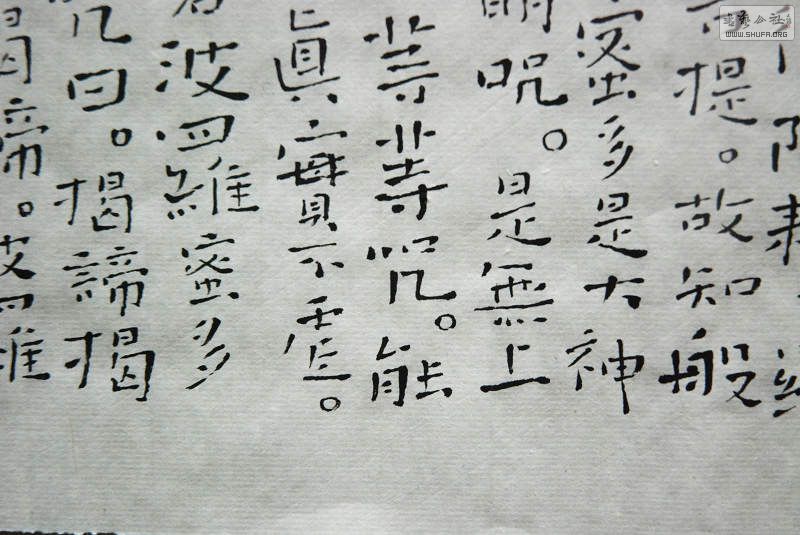 提。故知般
蜜多是大神
明呪。是無上
等等呪。能
眞實不虛。
若波羅蜜多
曰。揭諦揭
諦。波羅
書藝公社
WWW.SHUFA.ORG